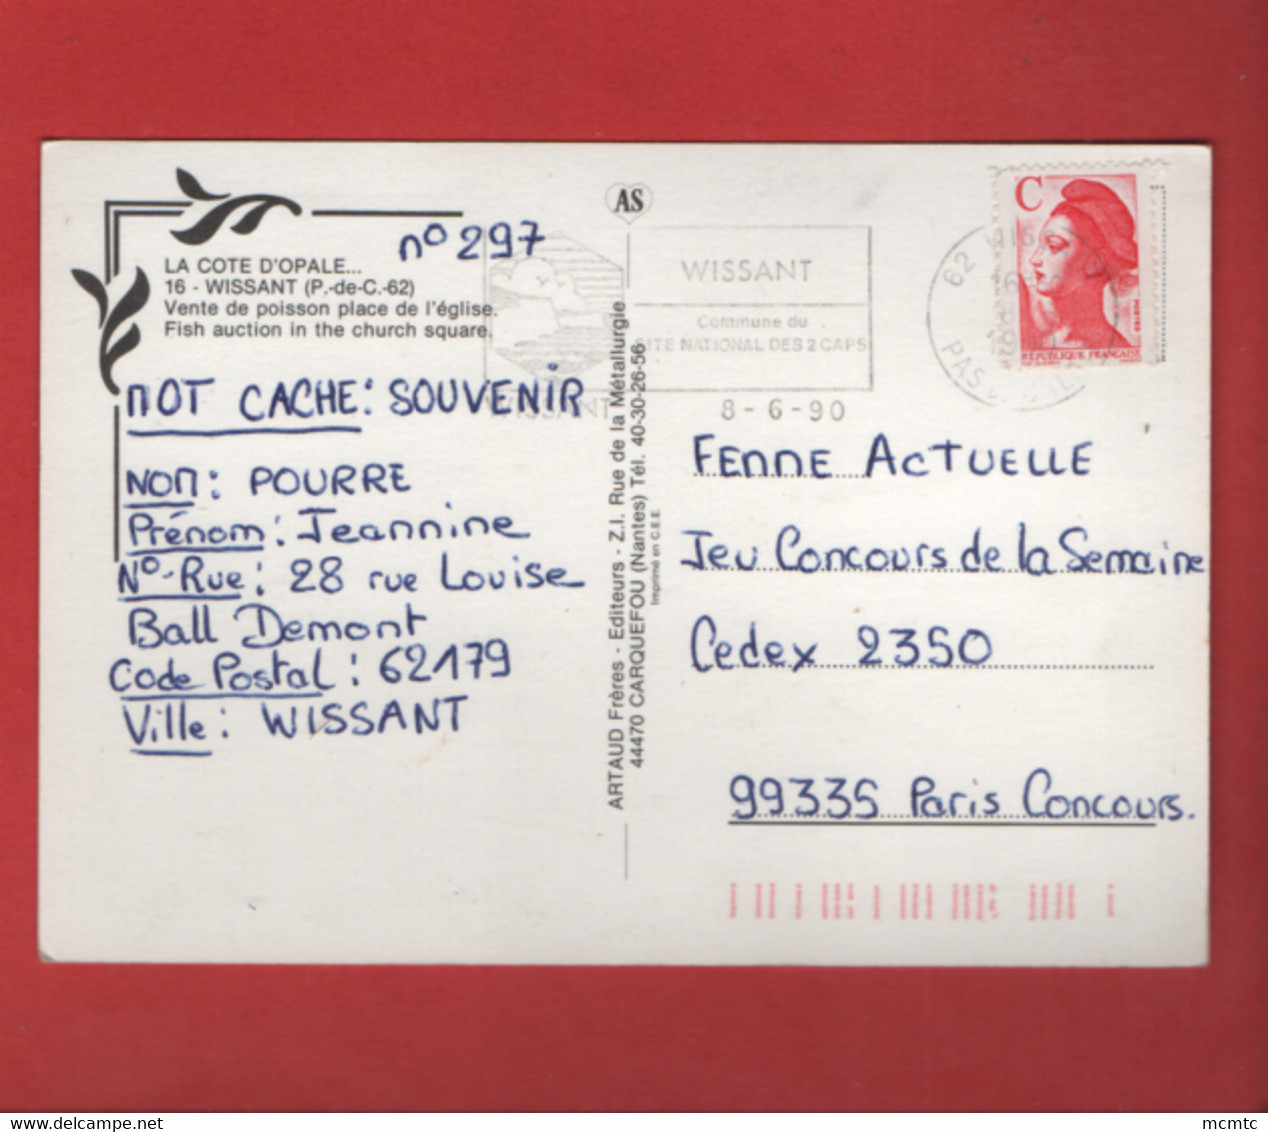 AS
n° 297
LA COTE D'OPALE...
16 - WISSANT (P.-de-C.-62)
Vente de poisson place de l'église.
Fish auction in the church square.
MOT CACHE: SOUVENIR
NOM: POURRE
Prénom: Jeannine
N°-Rue: 28 rue Louise
Ball Demont
Code Postal: 62179
Ville: WISSANT
ARTAUD Frères - Editeurs - Z.I. Rue de la Métallurgie
44470 CARQUEFOU (Nantes) Tél. 40-30-26-56
Imprimé en C.E.E.
WISSANT
Commune du
SITE NATIONAL DES 2 CAPS
WISSANT
8-6-90
C
POSTES
RÉPUBLIQUE FRANÇAISE
FEMME ACTUELLE
Jeu Concours de la Semaine
Cedex 2350
99335 Paris Concours.
delcampe.net
mcmtc